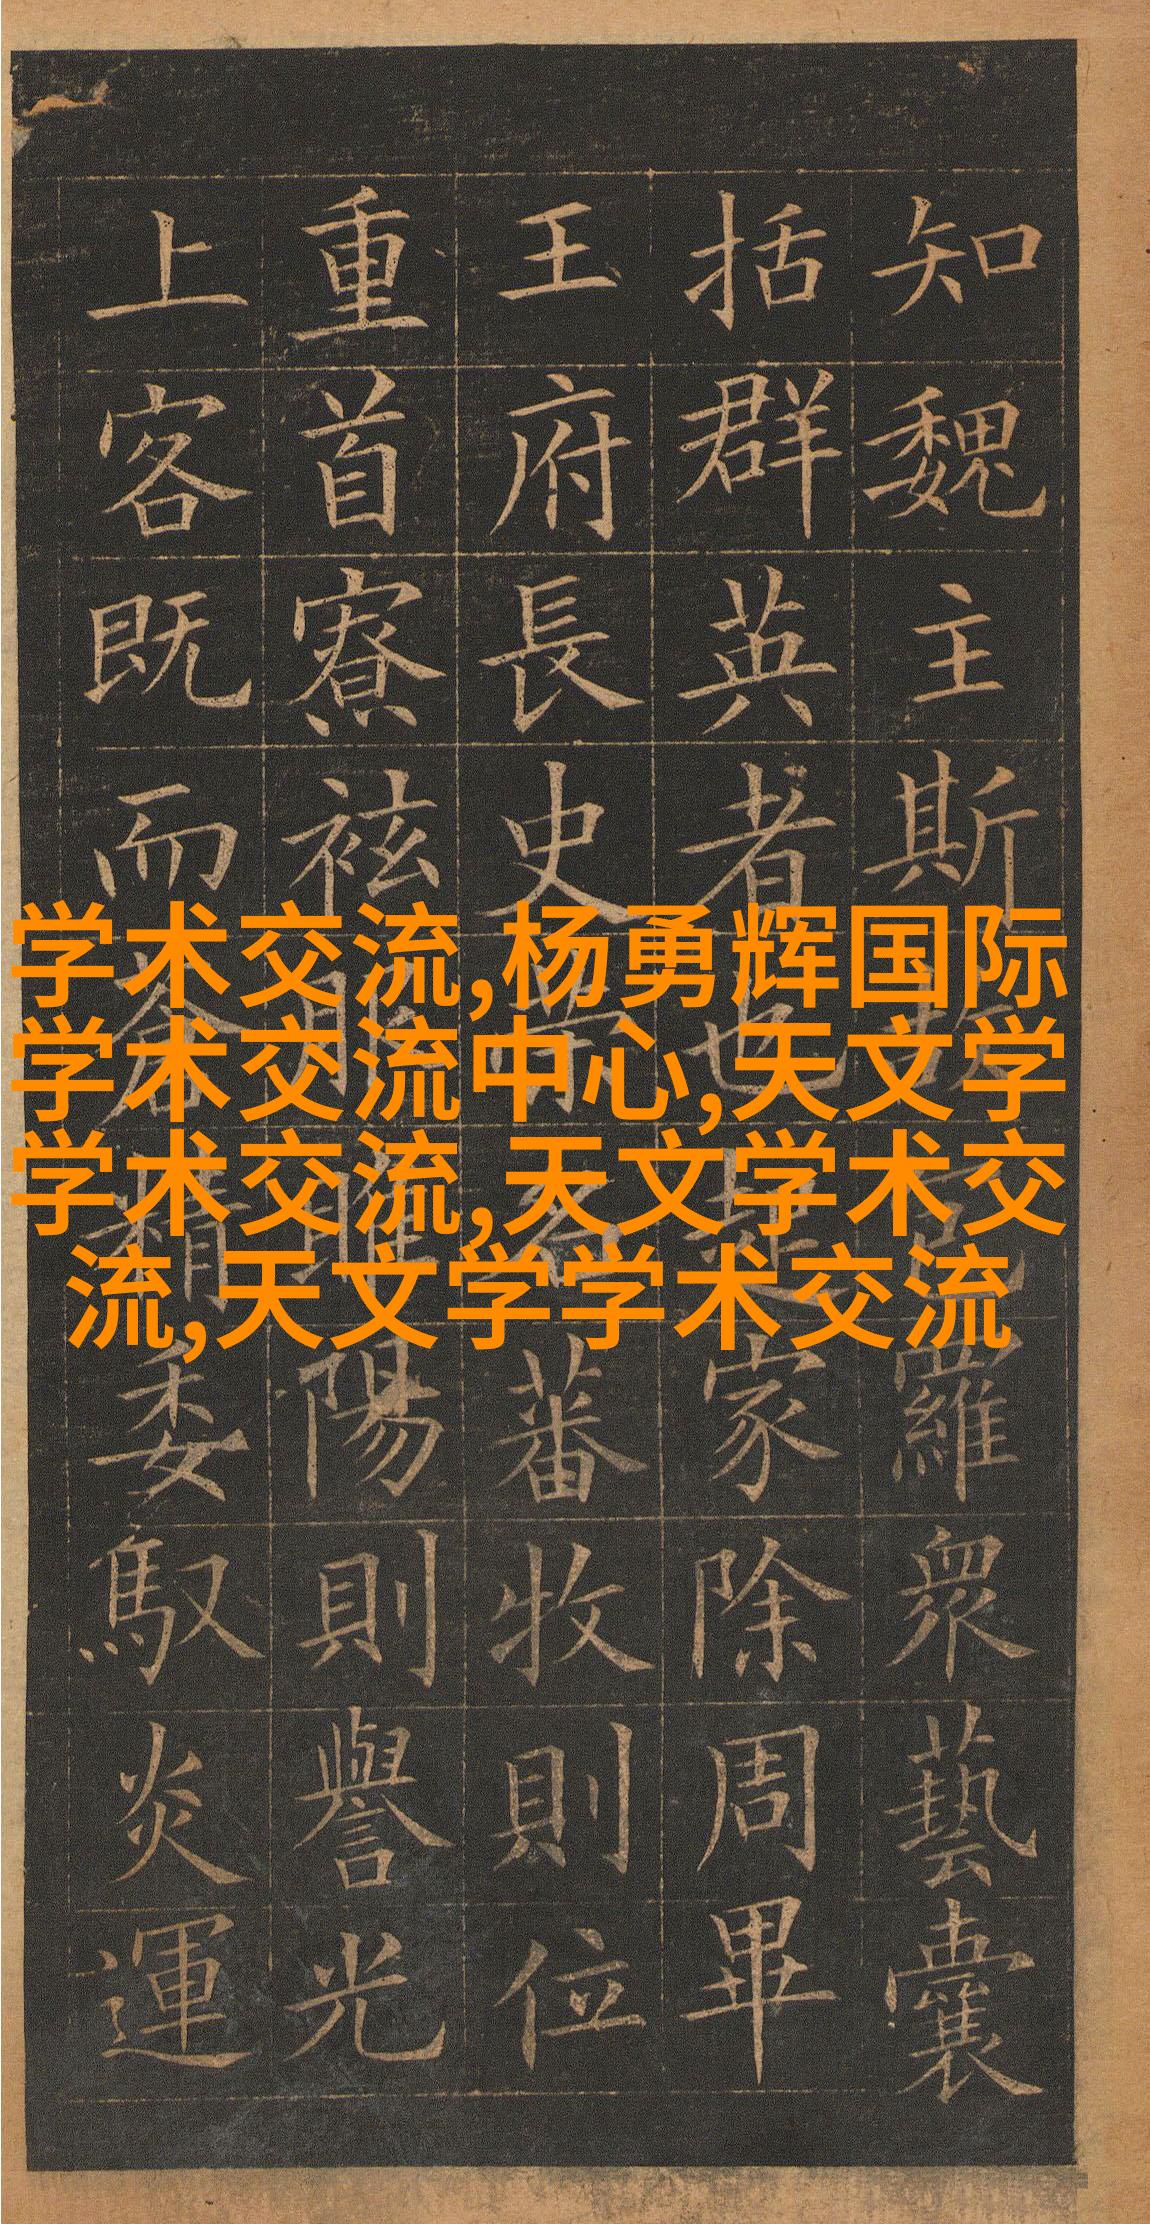 知魏主斯羅衆藝囊
括群英者也是家除周畢
王府長史蕃牧則位
重首寮袨服睢陽則譽光
上客既而蒼精委馭炎運
学术交流,杨勇辉国际
学术交流中心,天文学
学术交流,天文学术交
流,天文学学术交流